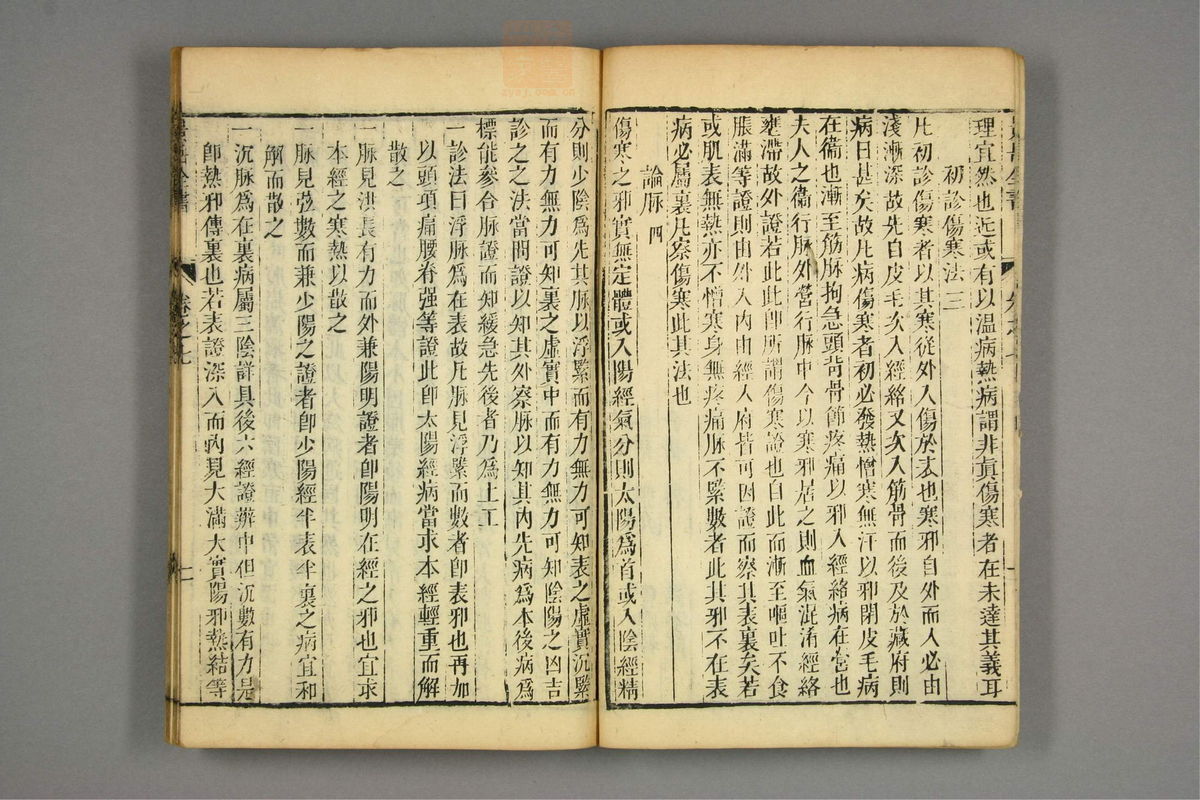 理宜然也近或有以温病熱病謂非眞傷寒者在未達其義耳
初診傷寒法 三
凡初診傷寒者以其寒從外入傷於表也寒邪自外而入必由
淺漸深故先自皮毛次入經絡又次入筋骨而後及於藏府則
病日甚矣故凡病傷寒者初必發熱憎寒無汗以邪閉皮毛病
在衞也漸至筋脉拘急頭背骨節疼痛以邪入經絡病在營也
夫人之衞行脉外營行脉中今以寒邪居之則血氣混淆經絡
壅滯故外證若此此卽所謂傷寒證也自此而漸至嘔吐不食
脹滿等證則由外入内由經入府皆可因證而察其表裏矣若
或肌表無熱亦不憎寒身無疼痛脉不緊數者此其邪不在表
病必屬裏凡察傷寒此其法也
論脉 四
傷寒之邪實無定體或入陽經氣分則太陽爲首或入陰經精
分則少陰爲先其脉以浮緊而有力無力可知表之虛實沉緊
而有力無力可知裏之虛實中而有力無力可知陰陽之凶吉
診之之法當問證以知其外察脉以知其内先病爲本後病爲
標能參合脉證而知緩急先後者乃爲上工
一診法曰浮脉爲在表故凡脉見浮緊而數者卽表邪也再加
以頭項痛腰脊强等證此卽太陽經病當求本經輕重而解
散之
一脉見洪長有力而外兼陽明證者卽陽明在經之邪也宜求
本經之寒熱以散之
一脉見弦數而兼少陽之證者卽少陽經半表半裏之病宜和
解而散之
一沉脉爲在裏病屬三陰詳具後六經證辨中但沉數有力是
卽熱邪傳裏也若表證深入而内見大滿大實陽邪熱結等
卷之七